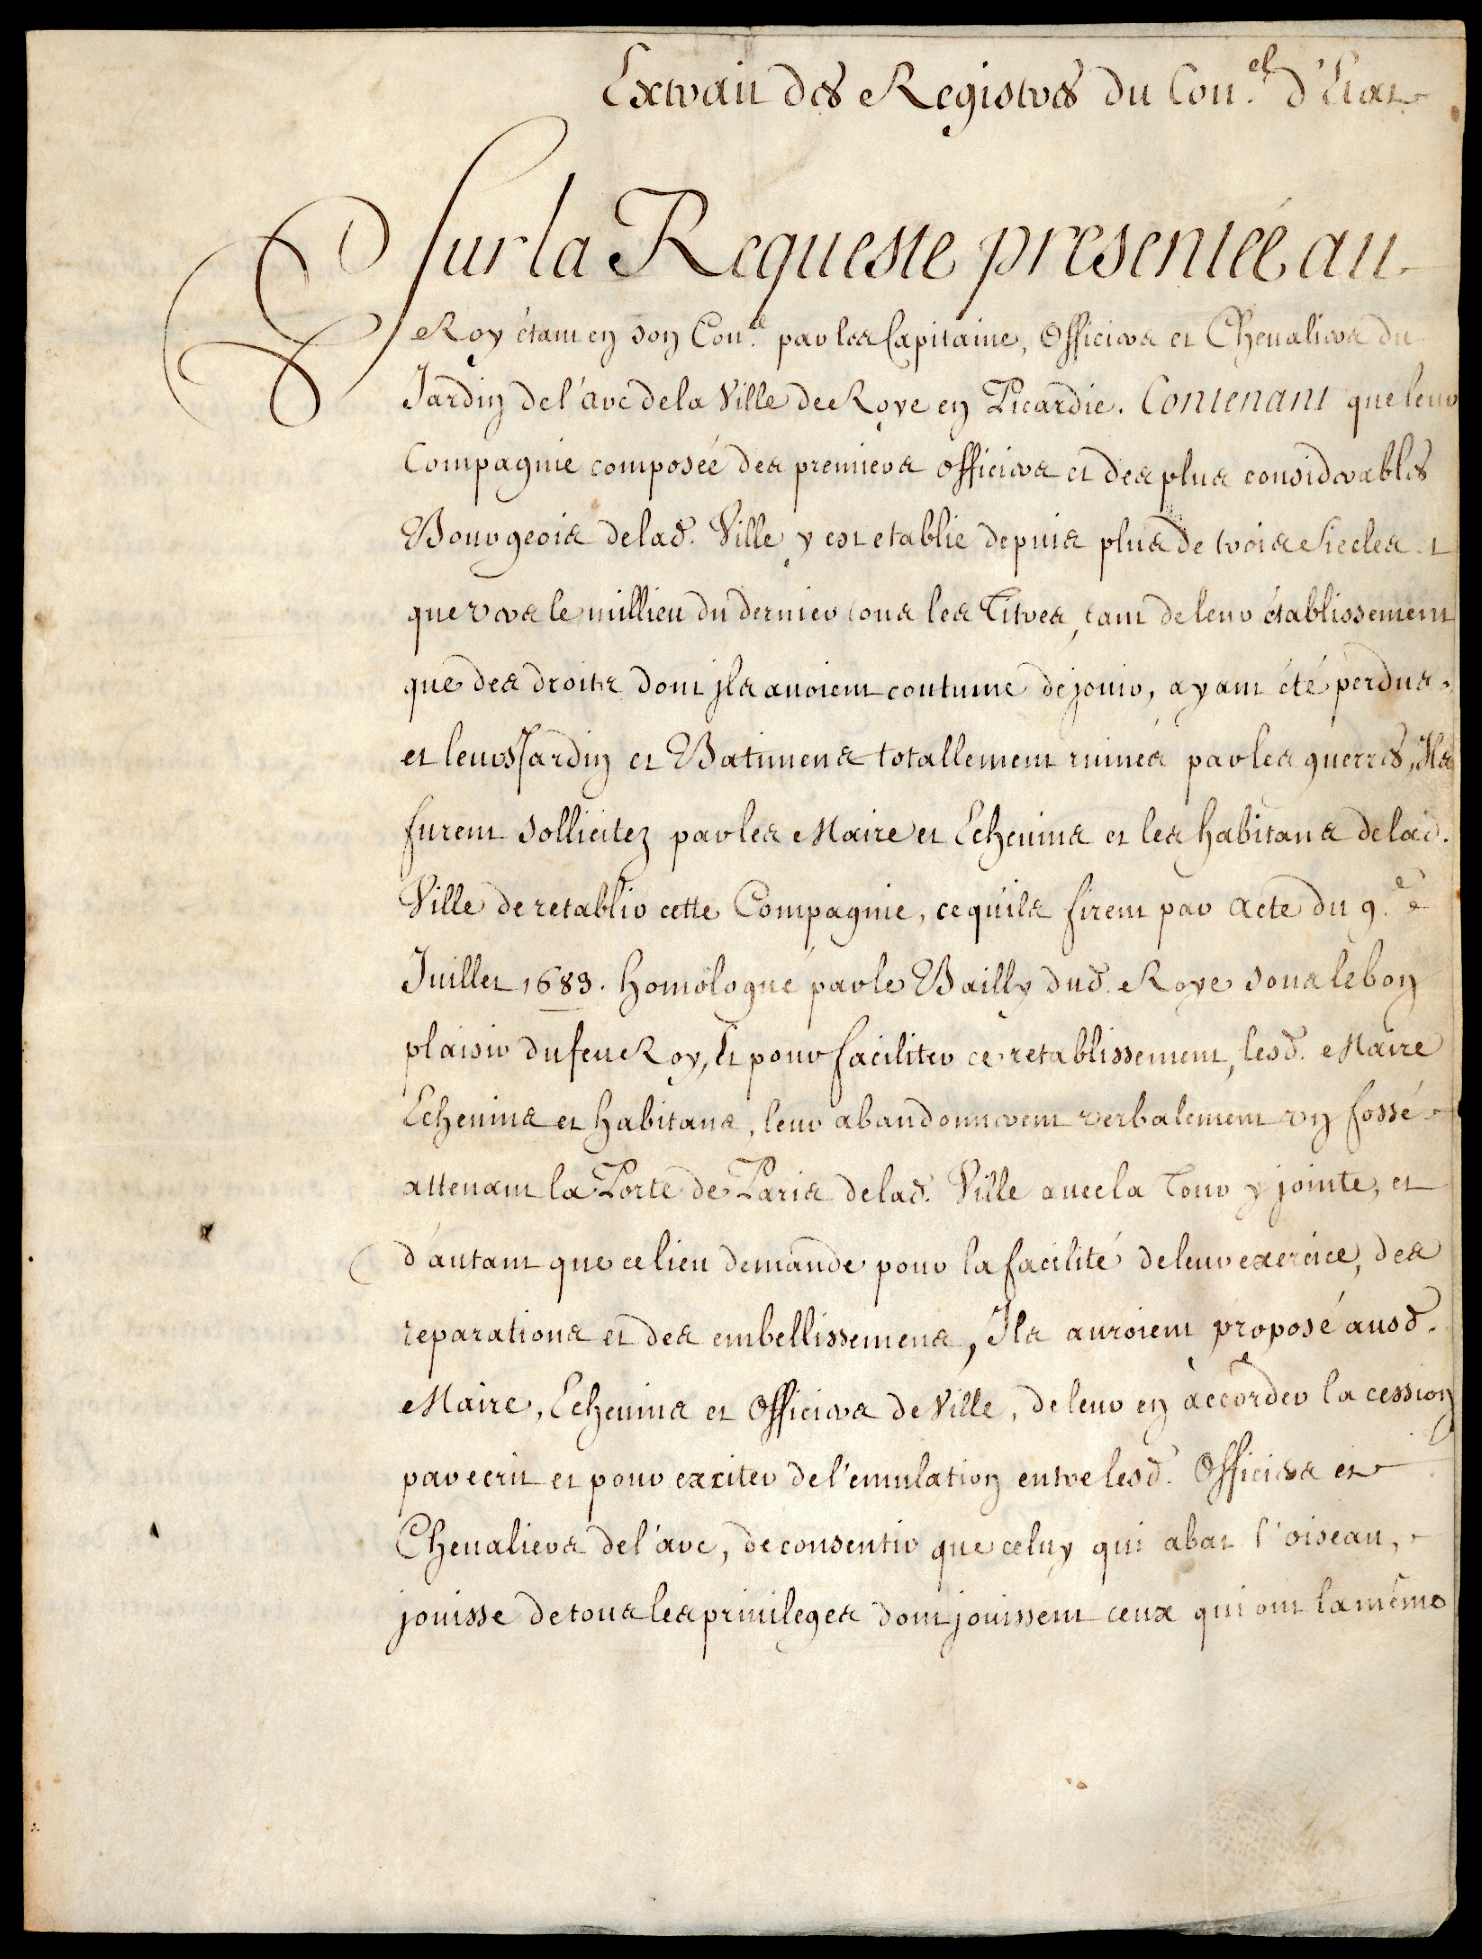 Extrait des Registres du Con.el d'Etat
Sur la Requeste presentée au
Roy étant en son Con.el par les Capitaine, Officiers et Chevaliers du
Jardin de l'arc de la Ville de Roye en Picardie. Contenant que leur
Compagnie composée des premiers officiers et des plus considerables
Bourgeois de lad. Ville y est etablie depuis plus de trois siecles et
que vers le millieu du dernier tous les Titres, tant de leur établissement
que des droits dont jls avoient coutume de jouir, ayant été perdus
et leurs Jardin et Batimens totallement ruinés par les guerres, Ils
furent sollicitez par les Maire et Echevins et les habitans de lad.
Ville de retablir cette Compagnie, ce qu'ils firent par acte du 9.e
Juillet 1683. homologué par le Bailly dud. Roye sous le bon
plaisir du feu Roy, Et pour faciliter ce retablissement, lesd. Maire
Echevins et habitans, leur abandonnerent verbalement vn fossé
attenant la Porte de Paris de lad. Ville avec la Tour y jointe, et
d'autant que ce lieu demande pour la facilité de leur exercice, des
reparations et des embellissemens, Ils auroient proposé ausd.
Maire, Echevins et Officiers de Ville, de leur en accorder la cession
par ecrit et pour exciter de l'emulation entre lesd. Officiers et
Chevaliers de l'arc, de consentir que celuy qui abat l'oiseau,
jouisse de tous les privileges dont jouissent ceux qui ont la même